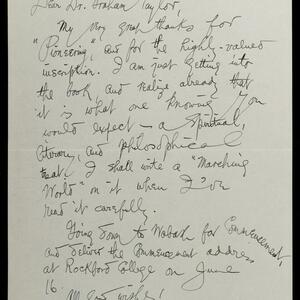 Dear Dr. Graham Taylor,
My very great thanks for
"Pioneering", and for the highly-valued
inscription. I am just getting into
the book, and realize already that
it is what one knowing you
would expect – a spiritual,
literary, and philosophical
treat. I shall write a "Marching
World" on it when I've
read it carefully.
Going down to Wabash for Commencement,
and deliver the Commencement address
at Rockford College on June
16.
All good wishes!